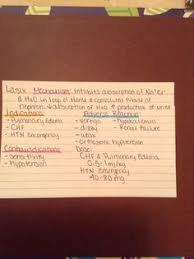 Lasix Mechanism: Inhibits absorption of Na+ Cl-
& H2O in loop of Henle &
Nephron. of H2O & production of urine
Indications
- Pulmonary Edema
- CHF
- HTN Emergency
Contraindications
- Sensitivity
- Hypotension
Adverse Reaction
- vertigo
- dizzy
- weak
- orthostatic hypotension
- Hypokalemia
- Renal Failure
Dose:
CHF & Pulmonary Edema
0.5-1mg/kg
HTN Emergency
40-80mg